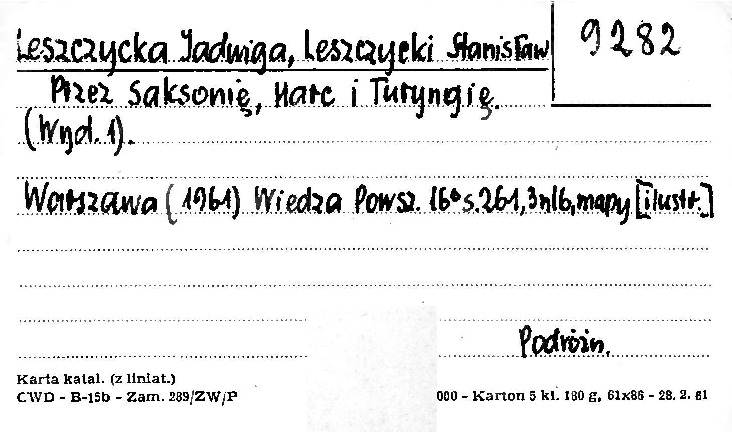 Leszczycka Jadwiga, Leszczycki Stanisław
9282
Przez Saksonię, Harc i Turyngię.
(Wyd. 1).
Warszawa (1961) Wiedza Powsz. 16° s. 261, 3 nlb, mapy [ilustr.]
Podróżn.
Karta katal. (z liniat.)
CWD - B-15b - Zam. 289/ZW/P
000 - Karton 5 kl. 180 g, 61x86 - 28. 2. 61